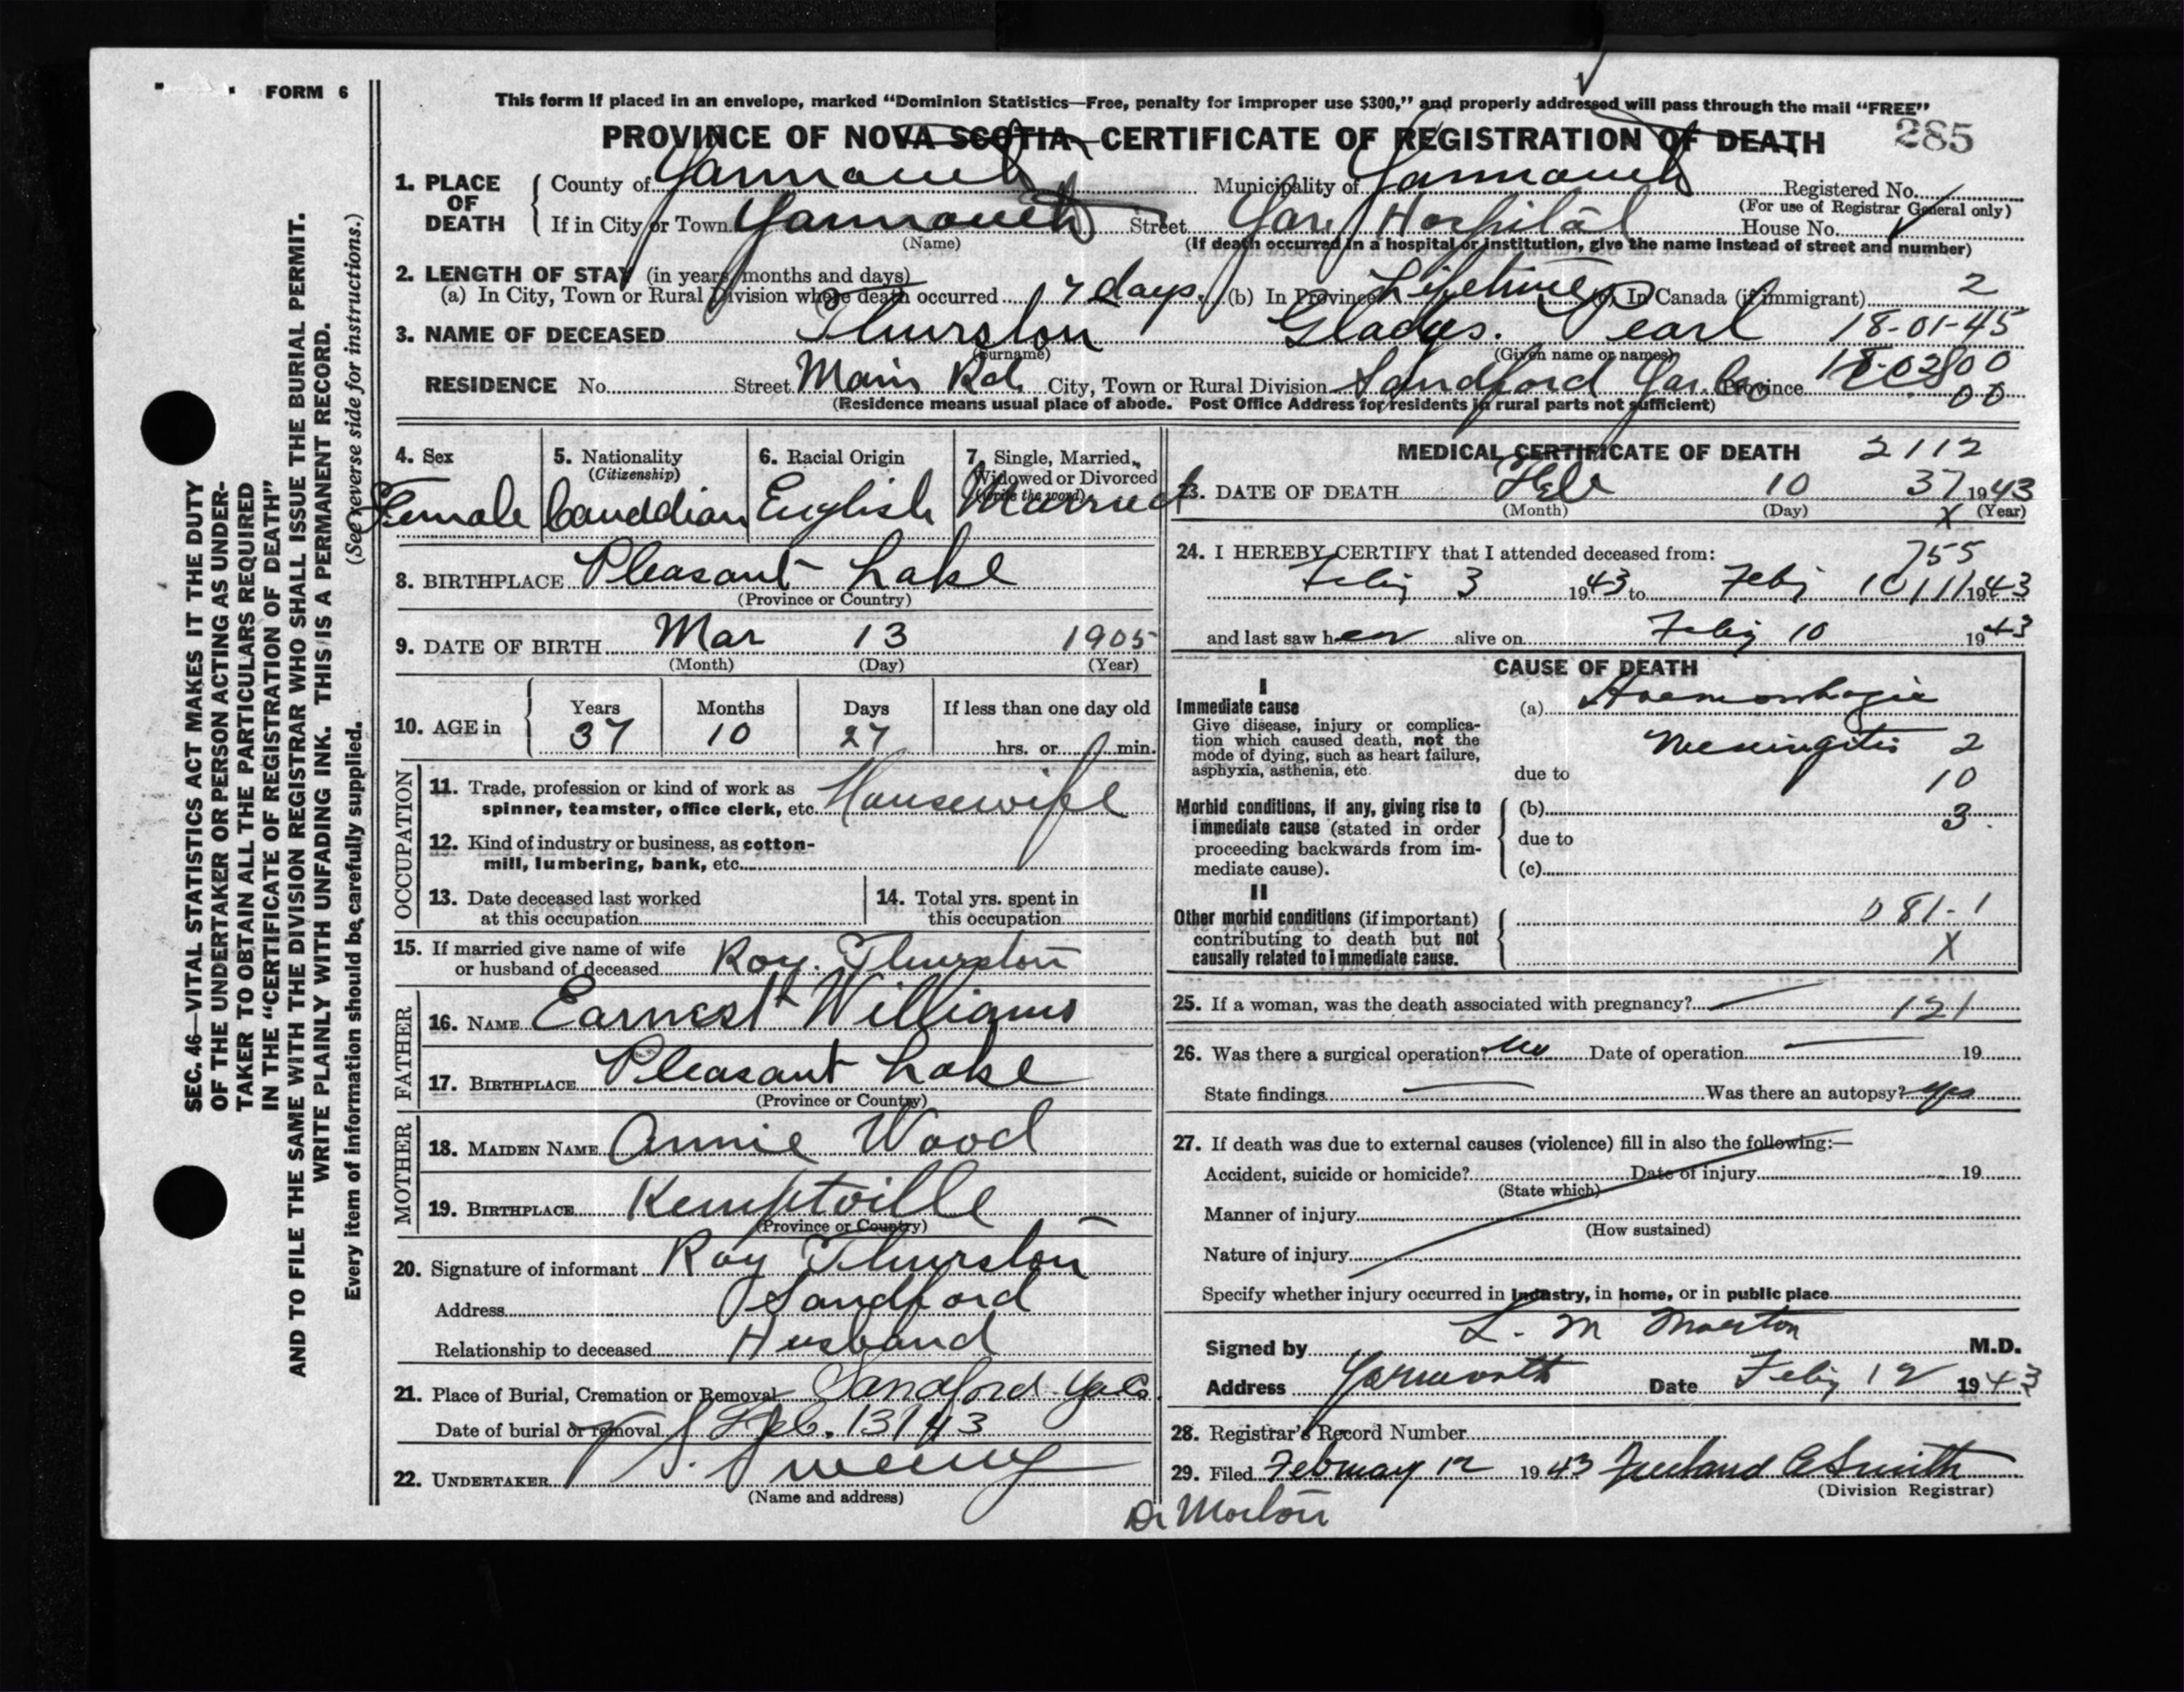 FORM 6
This form if placed in an envelope, marked “Dominion Statistics—Free, penalty for improper use $300,” and properly addressed will pass through the mail “FREE”
PROVINCE OF NOVA SCOTIA—CERTIFICATE OF REGISTRATION OF DEATH 285
1. PLACE OF DEATH
County of Yarmouth Municipality of Yarmouth Registered No.
(For use of Registrar General only)
If in City or Town Yarmouth Street Yar. Hospital House No.
(Name) (If death occurred in a hospital or institution, give the name instead of street and number)
2. LENGTH OF STAY (in years, months and days)
(a) In City, Town or Rural Division where death occurred 7 days (b) In Province Lifetime (c) In Canada (if immigrant) 2
3. NAME OF DECEASED Thurston Gladys. Pearl 18-01-45
(Surname) (Given name or names)
RESIDENCE No. Street Main Rd. City, Town or Rural Division Sandford Yar. Co Province 18-02800
00
(Residence means usual place of abode. Post Office Address for residents in rural parts not sufficient)
4. Sex 5. Nationality (Citizenship) 6. Racial Origin 7. Single, Married, Widowed or Divorced (write the word)
Female Canadian English Married
8. BIRTHPLACE Pleasant Lake
(Province or Country)
9. DATE OF BIRTH Mar 13 1905
(Month) (Day) (Year)
10. AGE in Years Months Days If less than one day old
37 10 27 hrs. or min.
OCCUPATION
11. Trade, profession or kind of work as spinner, teamster, office clerk, etc. Housewife
12. Kind of industry or business, as cotton-mill, lumbering, bank, etc.
13. Date deceased last worked at this occupation
14. Total yrs. spent in this occupation
15. If married give name of wife or husband of deceased Roy. Thurston
FATHER
16. NAME Earnest Williams
17. BIRTHPLACE Pleasant Lake
(Province or Country)
MOTHER
18. MAIDEN NAME Annie Wood
19. BIRTHPLACE Kemptville
(Province or Country)
20. Signature of informant Roy Thurston
Address Sandford
Relationship to deceased Husband
21. Place of Burial, Cremation or Removal Sandford Ya Co.
Date of burial or removal Feb. 13/43
22. UNDERTAKER V. S. Sweeny
(Name and address)
MEDICAL CERTIFICATE OF DEATH 2112
23. DATE OF DEATH Feb 10 37 1943
(Month) (Day) X (Year)
24. I HEREBY CERTIFY that I attended deceased from: 755
Feby 3 1943 to Feby 10/11 1943
and last saw her alive on Feby 10 1943
CAUSE OF DEATH
I
Immediate cause
Give disease, injury or complication which caused death, not the mode of dying, such as heart failure, asphyxia, asthenia, etc.
(a) Haemorrhagic
Meningitis 2
due to 10
Morbid conditions, if any, giving rise to immediate cause (stated in order proceeding backwards from immediate cause).
(b) 3.
due to
(c)
II
Other morbid conditions (if important) contributing to death but not causally related to immediate cause.
081-1
X
25. If a woman, was the death associated with pregnancy? 121
26. Was there a surgical operation? No Date of operation 19
State findings Was there an autopsy? yes
27. If death was due to external causes (violence) fill in also the following:—
Accident, suicide or homicide? Date of injury 19
(State which)
Manner of injury
(How sustained)
Nature of injury
Specify whether injury occurred in industry, in home, or in public place
Signed by L. M Morton M.D.
Address Yarmouth Date Feby 12 1943
28. Registrar's Record Number
29. Filed February 12 1943 Freeland C Smith
(Division Registrar)
Dr Morton
SEC. 46—VITAL STATISTICS ACT MAKES IT THE DUTY
OF THE UNDERTAKER OR PERSON ACTING AS UNDER-
TAKER TO OBTAIN ALL THE PARTICULARS REQUIRED
IN THE “CERTIFICATE OF REGISTRATION OF DEATH”
AND TO FILE THE SAME WITH THE DIVISION REGISTRAR WHO SHALL ISSUE THE BURIAL PERMIT.
WRITE PLAINLY WITH UNFADING INK. THIS IS A PERMANENT RECORD.
Every item of information should be carefully supplied. (See reverse side for instructions.)